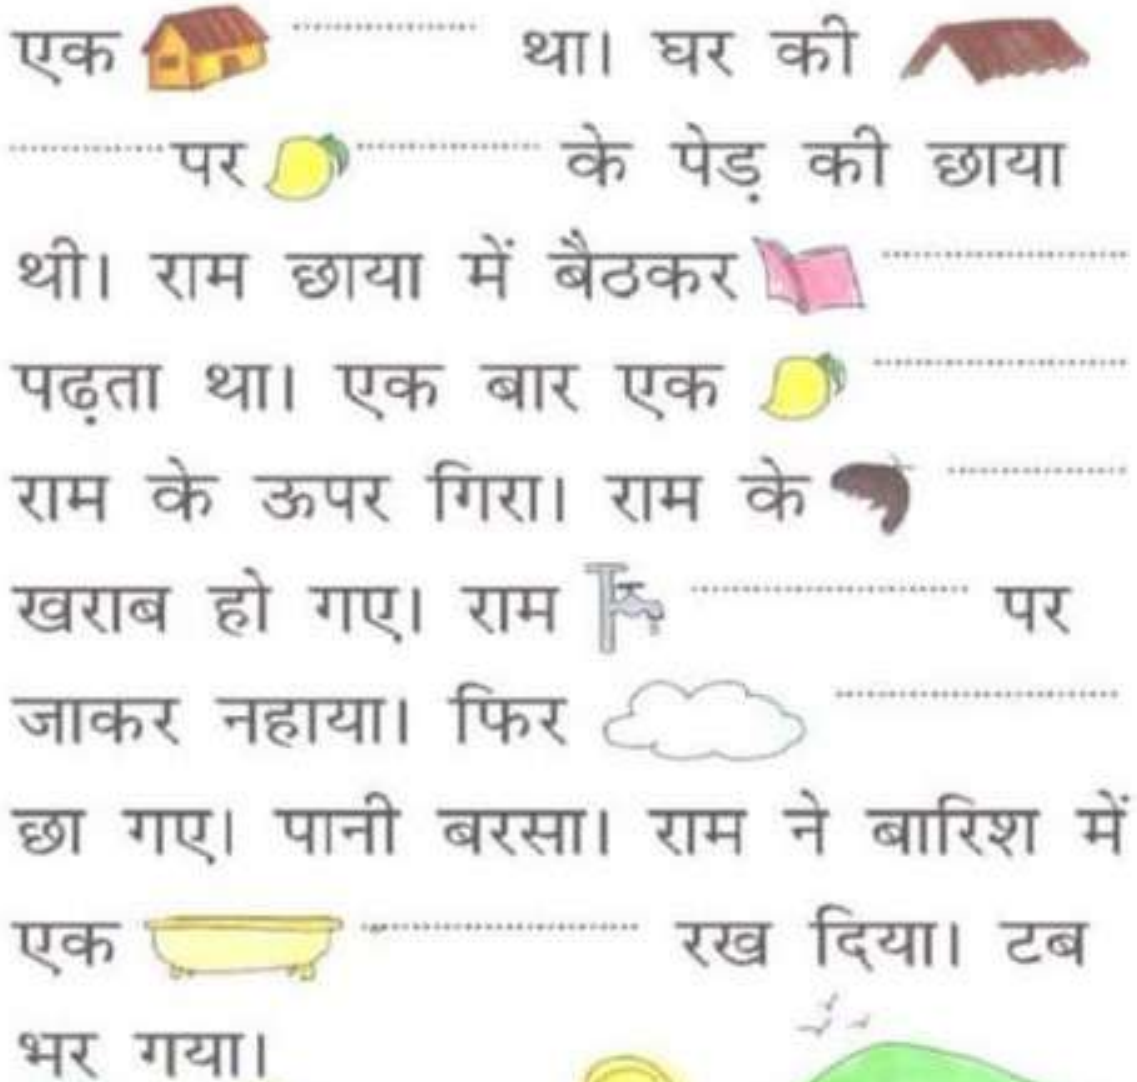 एक ............ था। घर की
............ पर ............ के पेड़ की छाया
थी। राम छाया में बैठकर ............
पढ़ता था। एक बार एक ............
राम के ऊपर गिरा। राम के ............
खराब हो गए। राम ............ पर
जाकर नहाया। फिर ............
छा गए। पानी बरसा। राम ने बारिश में
एक ............ रख दिया। टब
भर गया।